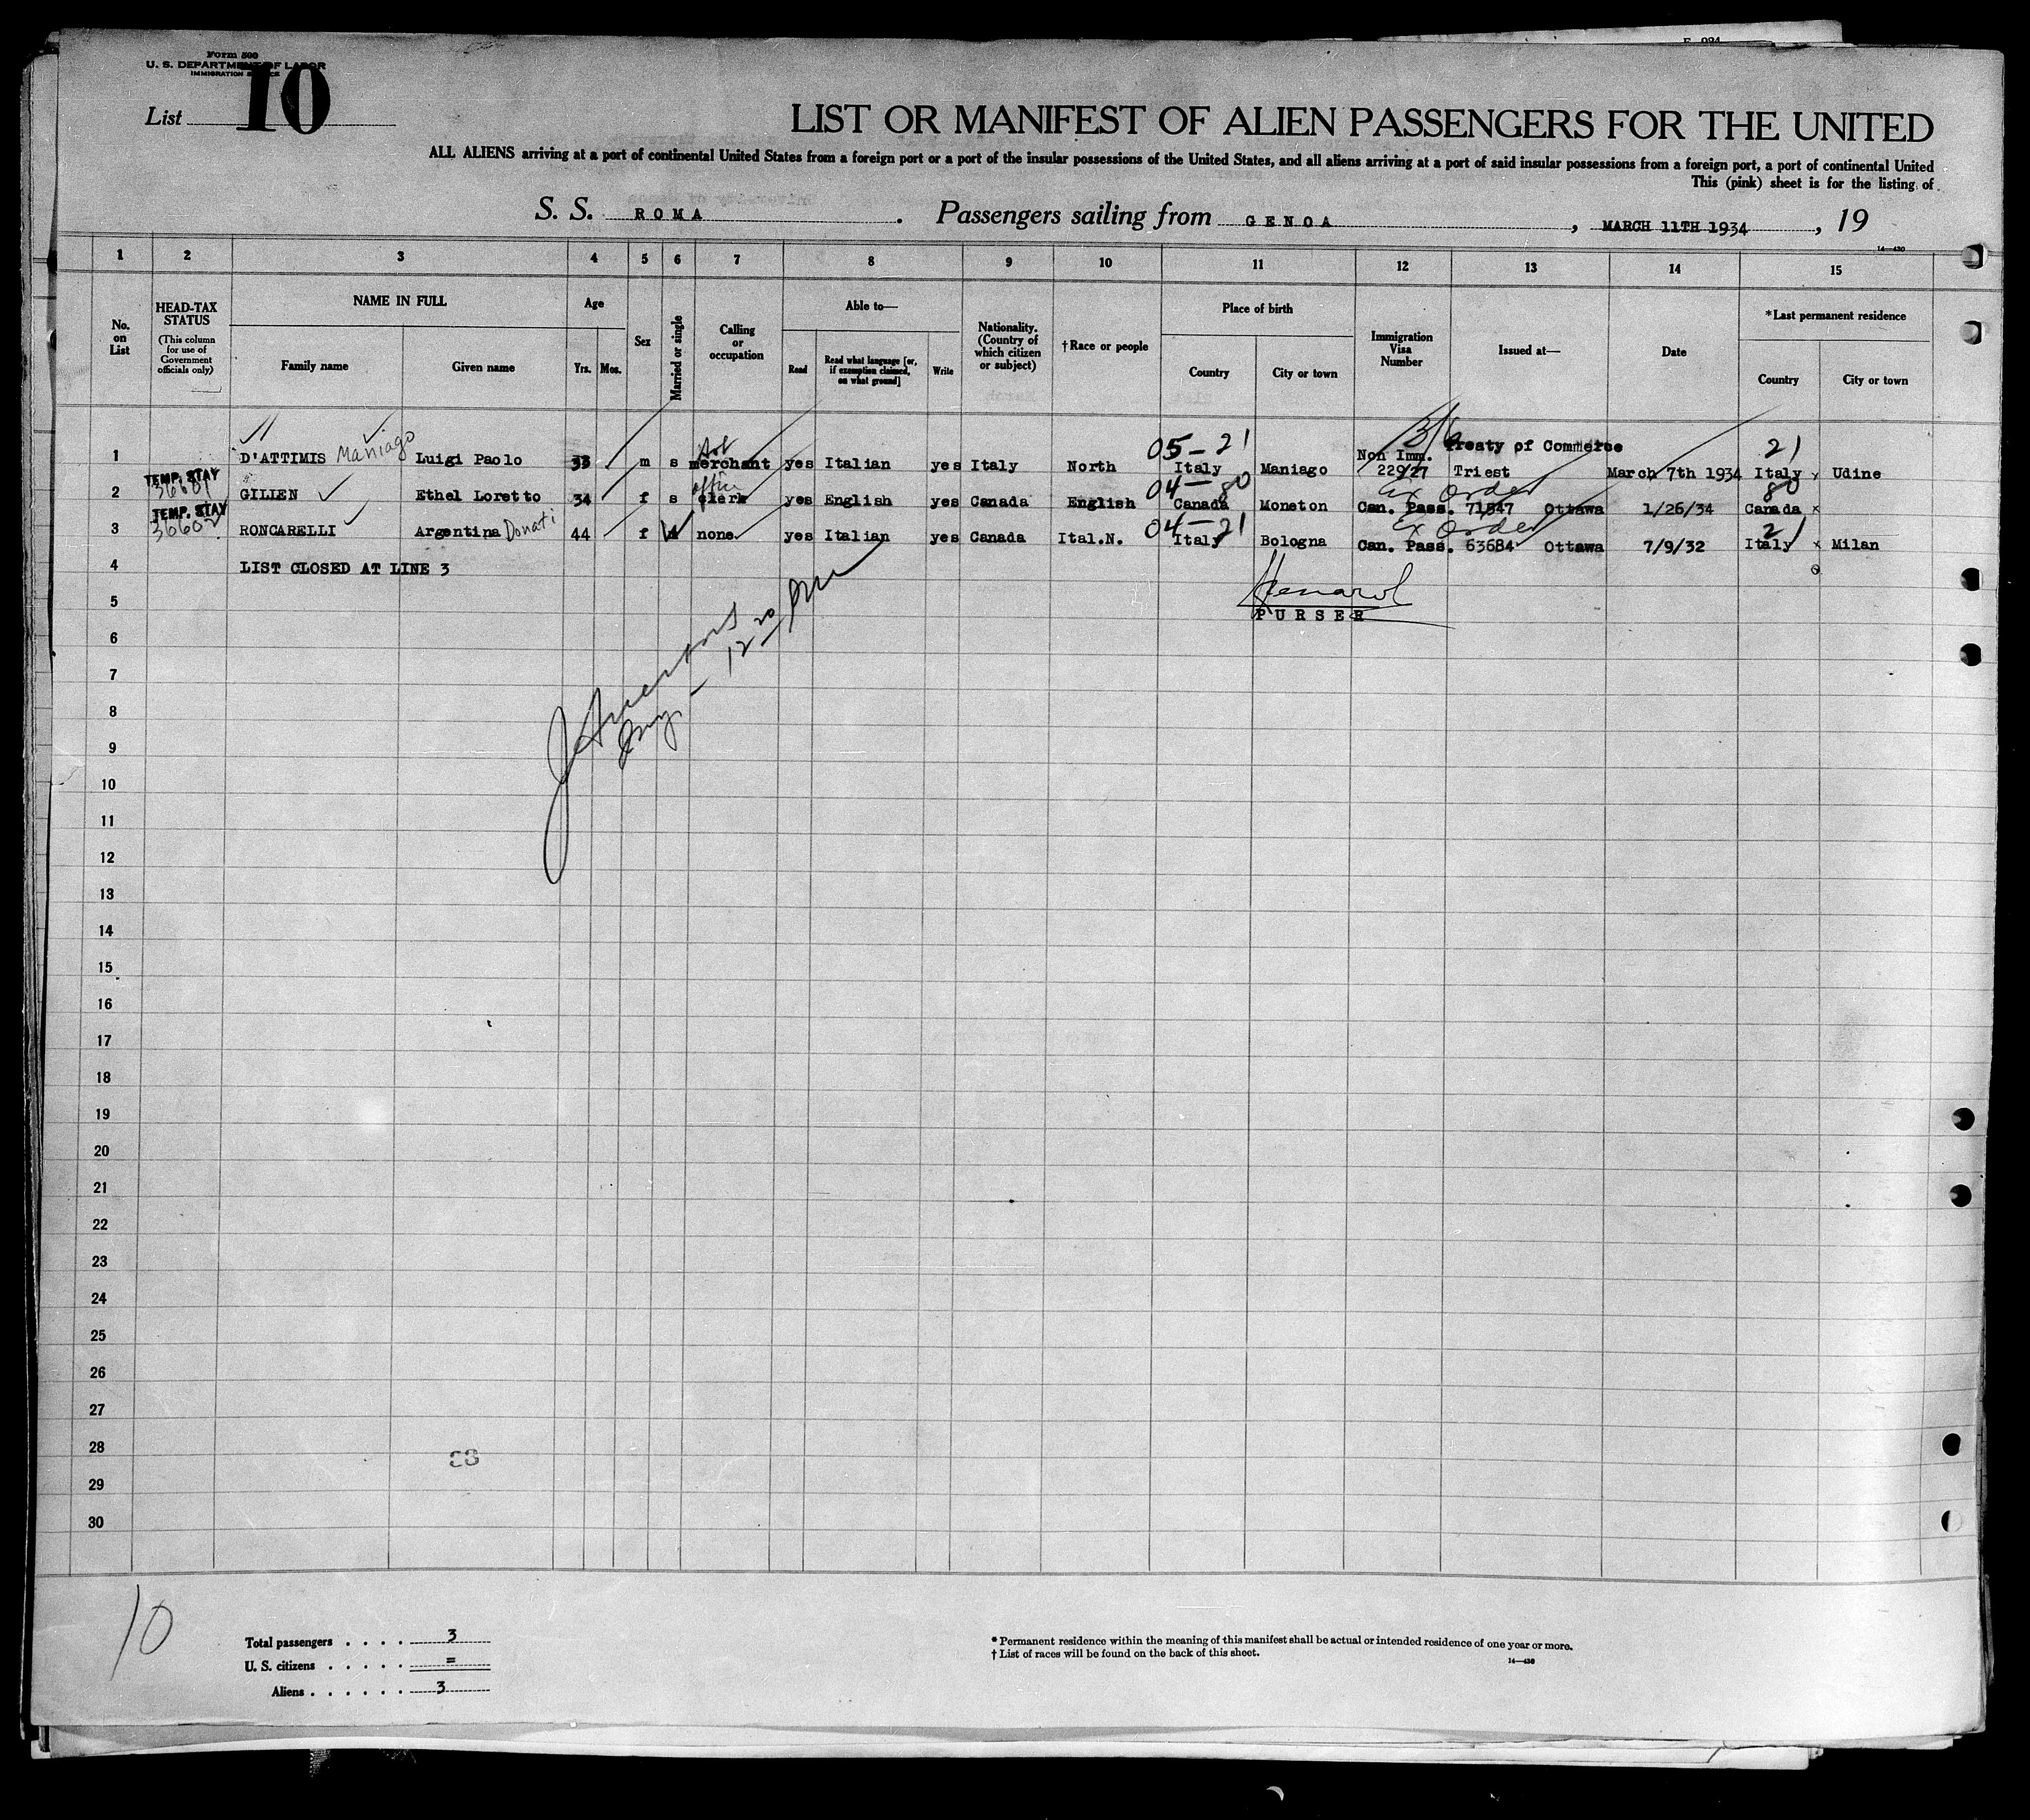 Form 500
U. S. DEPARTMENT OF LABOR
IMMIGRATION SERVICE
List 10
LIST OR MANIFEST OF ALIEN PASSENGERS FOR THE UNITED
ALL ALIENS arriving at a port of continental United States from a foreign port or a port of the insular possessions of the United States, and all aliens arriving at a port of said insular possessions from a foreign port, a port of continental United
This (pink) sheet is for the listing of
S. S. ROMA. Passengers sailing from GENOA, MARCH 11TH 1934, 19
14—430
1 2 3 4 5 6 7 8 9 10 11 12 13 14 15
No. on List
HEAD-TAX STATUS
(This column for use of Government officials only)
NAME IN FULL
Family name
Given name
Age
Yrs. Mos.
Sex
Married or single
Calling or occupation
Able to—
Read
Read what language [or, if exemption claimed, on what ground]
Write
Nationality. (Country of which citizen or subject)
†Race or people
Place of birth
Country
City or town
Immigration Visa Number
Issued at—
Date
*Last permanent residence
Country
City or town
05-21 Treaty of Commerce 21
Non Imm.
1 D'ATTIMIS Maniago Luigi Paolo 33 m s merchant yes Italian yes Italy North Italy Maniago 229/27 Triest March 7th 1934 Italy x Udine
TEMP. STAY
office 04-80 Ex Order 80
2 GILIEN Ethel Loretto 34 f s clerk yes English yes Canada English Canada Moneton Can. Pass. 71547 Ottawa 1/26/34 Canada x
TEMP. STAY
36602 04-21 Ex Order 21
3 RONCARELLI Argentina Donati 44 f none yes Italian yes Canada Ital.N. Italy Bologna Can. Pass. 63684 Ottawa 7/9/32 Italy x Milan
4 LIST CLOSED AT LINE 3
PURSER
5
6
7
8
9
10
11
12
13
14
15
16
17
18
19
20
21
22
23
24
25
26
27
28
29
30
10
Total passengers . . . . 3
U. S. citizens . . . . . =
Aliens . . . . . . 3
* Permanent residence within the meaning of this manifest shall be actual or intended residence of one year or more.
† List of races will be found on the back of this sheet.
14—430